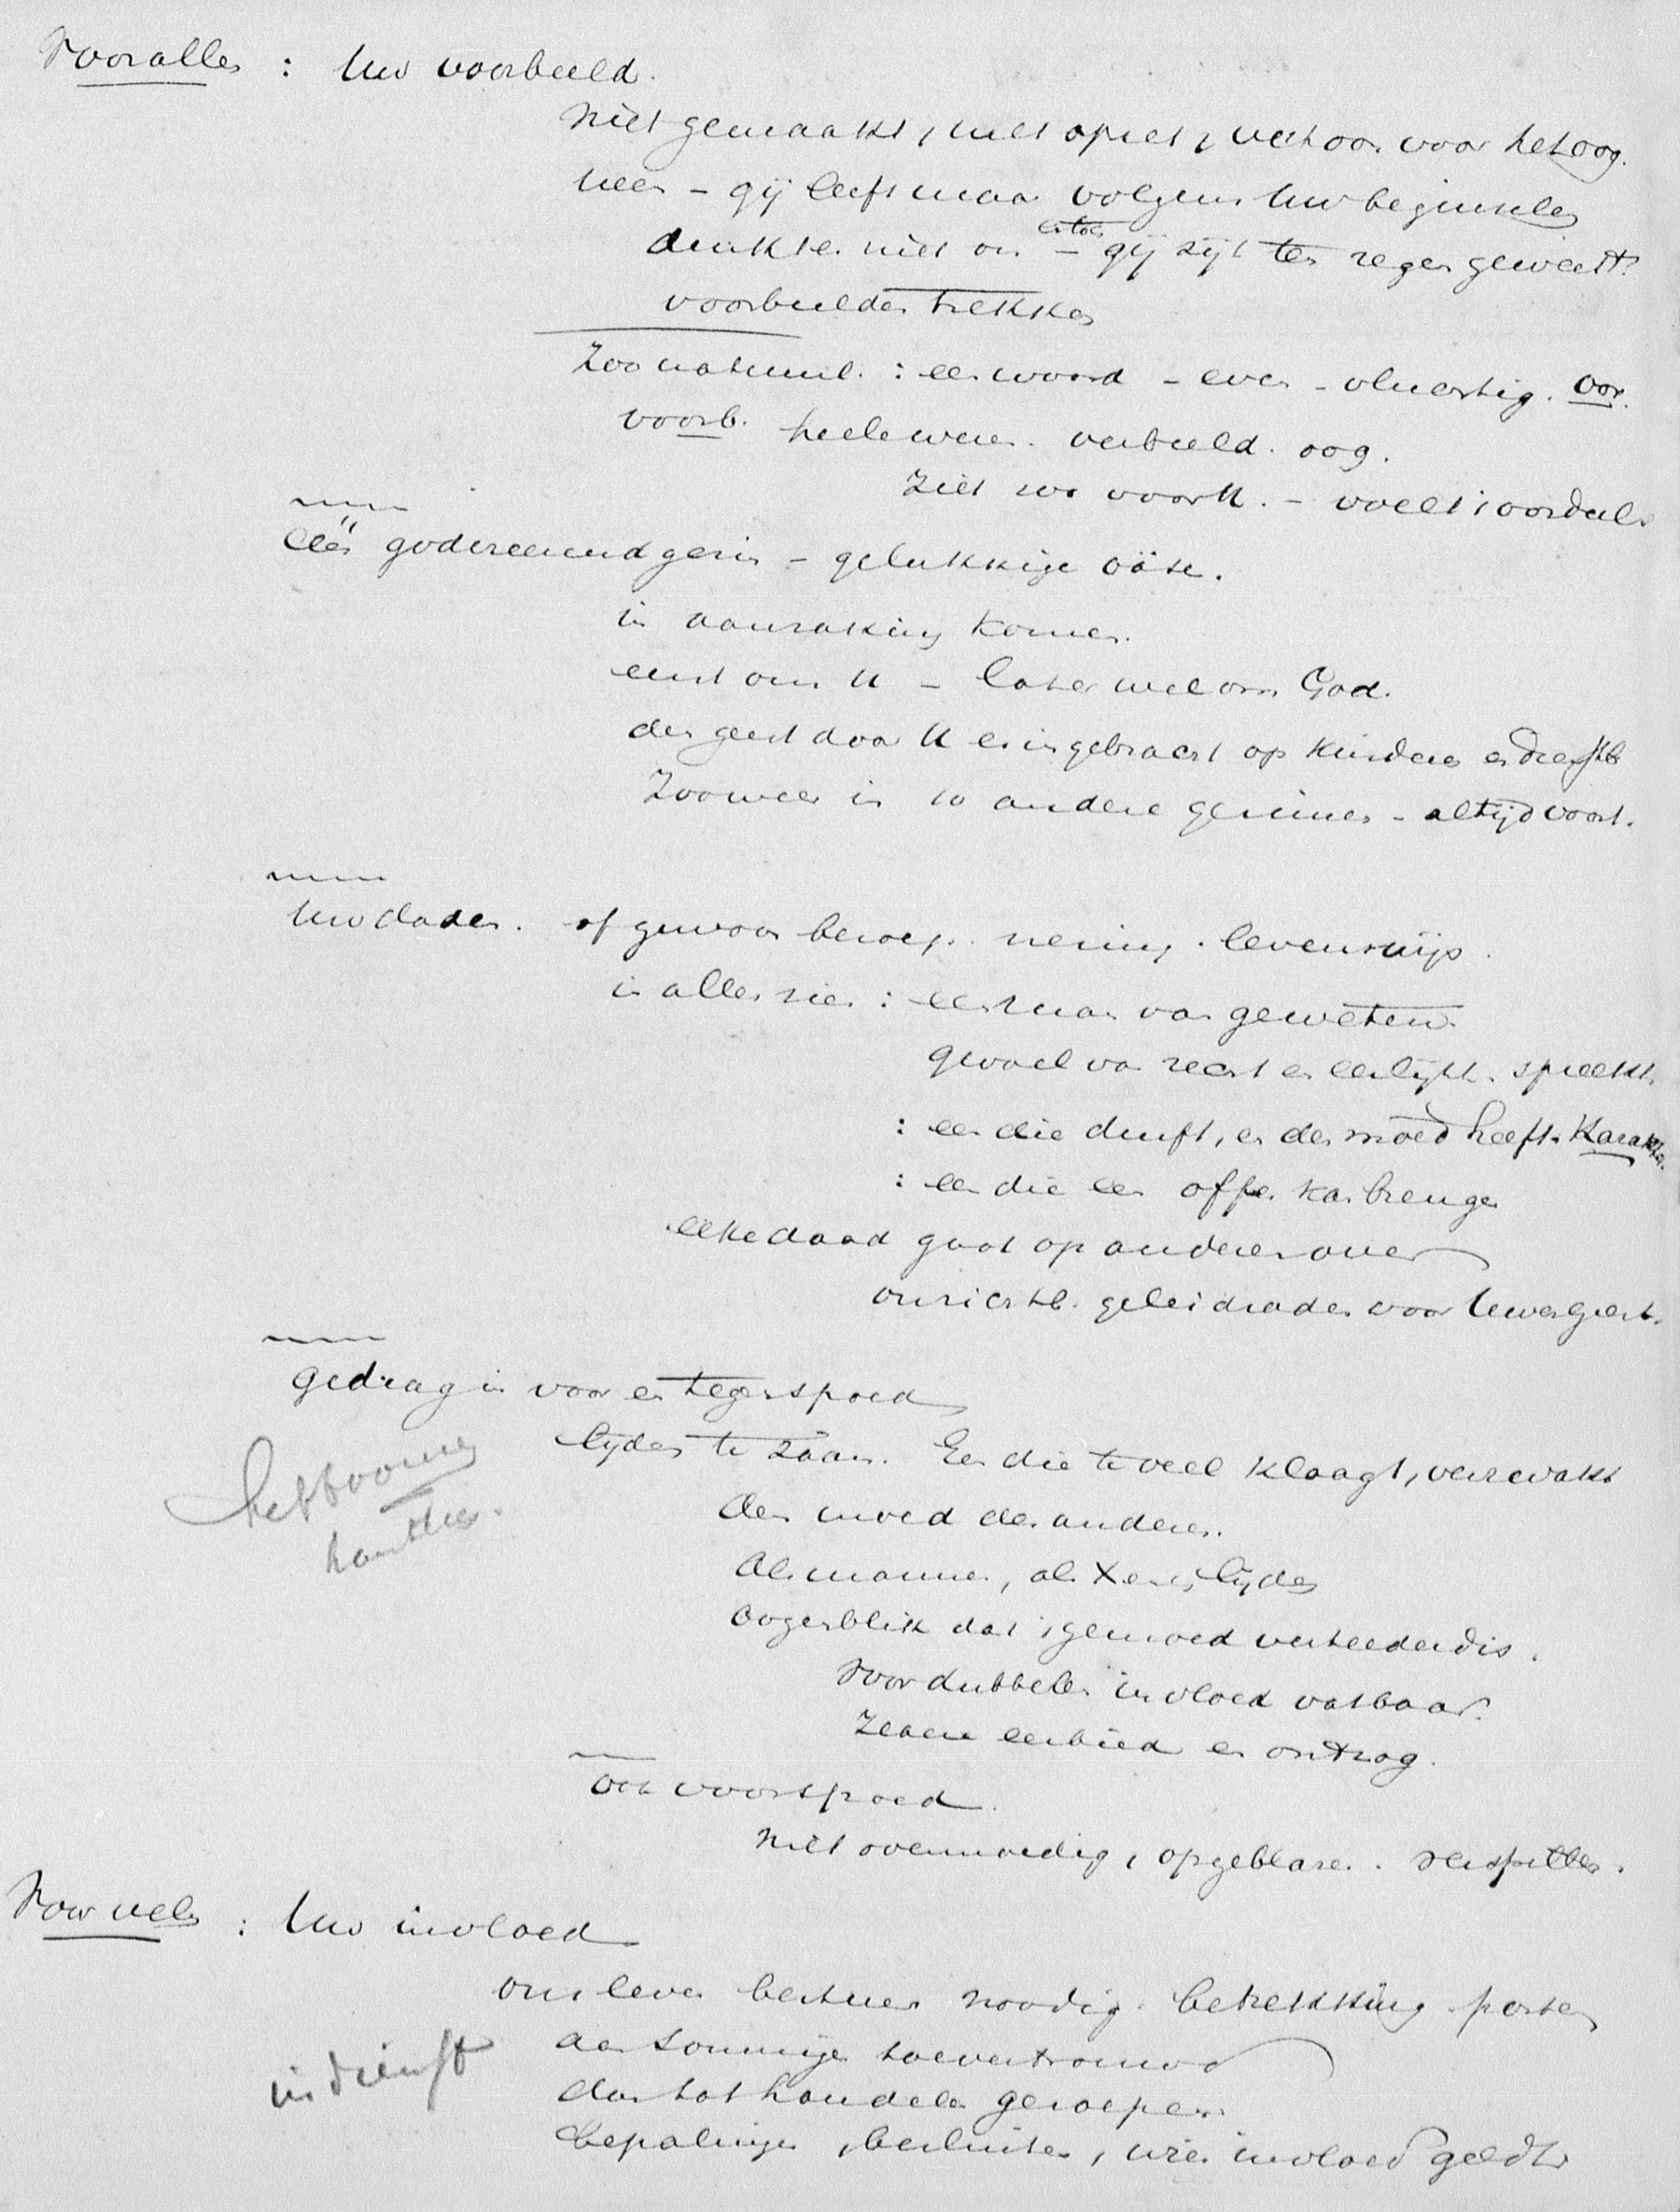 Voor allen : Uw voorbeeld.
Niet gemaakt, met opzet, vertoon voor het oog.
neen - gij leeft maar volgens Uw beginselen
denkt er niet om - en toch gij zijt ten zegen geweest.
voorbeelden trekken
Zoo natuurl. : een woord - even - vluchtig. oor.
voorb. heele wezen. verbeeld. oog.
Ziet zoo voor U. - voelt 't voordeel.
één godvreezend gezin - gelukkige oäse.
in aanraking komen.
eerst om U - later wel om God.
den geest door U er ingebracht op kinderen en
Zoo weer in 10 andere gezinnen - altijd voort.
Uw daden. of gewoon beroep. nering. levenswijs.
in alles zien : een man van geweten.
gevoel van recht en eerlijkh. spreekt.
: een die durft, en den moed heeft. Karakter.
: een die een offer kan brengen
elke daad gaat op anderen over
onzichtb. geleidraden voor Uwen geest.
Gedrag in voor en tegenspoed
lijden te zaam. Een die te veel klaagt, verzwakt
den moed der anderen.
Als mannen, als Xenen lijden
Oogenblik dat 't gemoed verteederd is.
Voor dubbelen invloed vatbaar.
eerbied en ontzag.
ook voorspoed.
Niet overmoedig, opgeblazen.
Voor velen : Uw invloed
ons leven bestuur noodig. betrekking posten
aan sommigen toevertrouwd
dan tot handelen geroepen.
in dienst
bepalingen, besluiten, wier invloed geldt